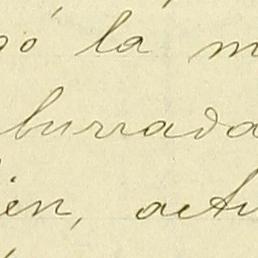 gó la m
burrada
ien, actu